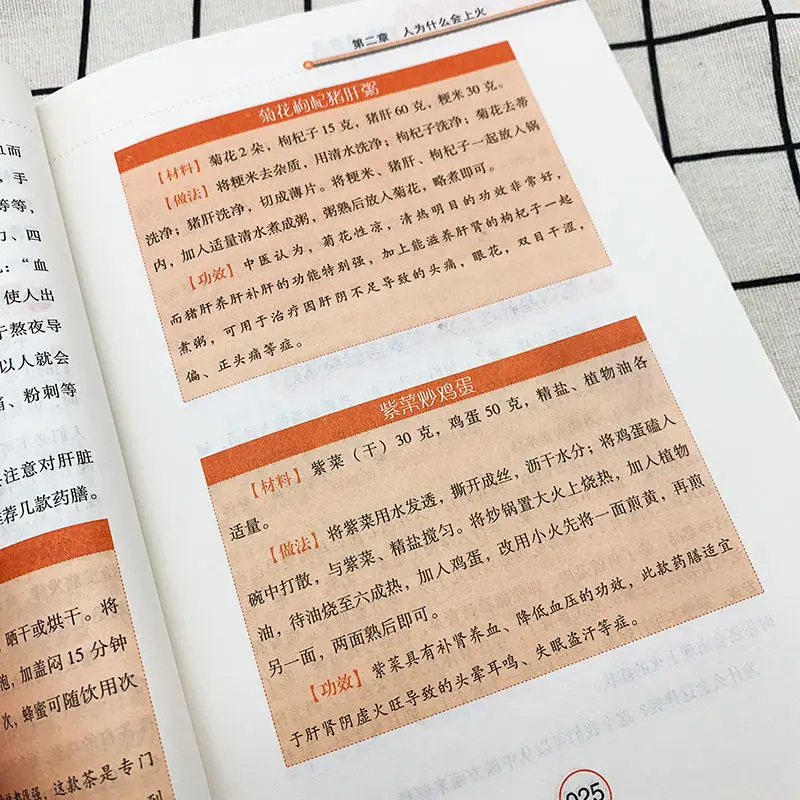 且而
，手
等等，
力、四
：“血
使人出
于熬夜导
以人就会
痛、粉刺等
注意对肝脏
推荐几款药膳。
晒干或烘干。将
泡，加盖闷15分钟
次，蜂蜜可随饮用次
这款茶是专门
第二章 人为什么会上火
菊花枸杞猪肝粥
【材料】菊花2朵，枸杞子15克，猪肝60克，粳米30克。
【做法】将粳米去杂质，用清水洗净；枸杞子洗净；菊花去蒂
洗净；猪肝洗净，切成薄片。将粳米、猪肝、枸杞子一起放入锅
内，加入适量清水煮成粥，粥熟后放入菊花，略煮即可。
【功效】中医认为，菊花性凉，清热明目的功效非常好，
而猪肝养肝补肝的功能特别强，加上能滋养肝肾的枸杞子一起
煮粥，可用于治疗因肝阴不足导致的头痛，眼花，双目干涩，
偏、正头痛等症。
紫菜炒鸡蛋
【材料】紫菜（干）30克，鸡蛋50克，精盐、植物油各
适量。
【做法】将紫菜用水发透，撕开成丝，沥干水分；将鸡蛋磕入
碗中打散，与紫菜、精盐搅匀。将炒锅置大火上烧热，加入植物
油，待油烧至六成热，加入鸡蛋，改用小火先将一面煎黄，再煎
另一面，两面熟后即可。
【功效】紫菜具有补肾养血、降低血压的功效，此款药膳适宜
于肝肾阴虚火旺导致的头晕耳鸣、失眠盗汗等症。
025